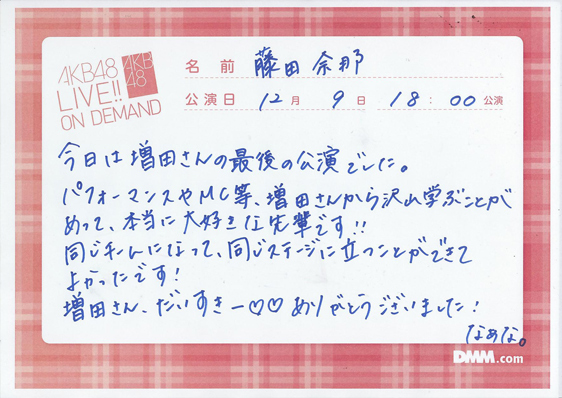 AKB48
LIVE!!
ON DEMAND
AKB
48
名前 藤田奈那
公演日 12月 9日 18:00公演
今日は増田さんの最後の公演でした。
パフォーマンスやMC等、増田さんから沢山学ぶことが
あって、本当に大好きな先輩です!!
同じチームになって、同じステージに立つことができて
よかったです!
増田さん、だいすきー♡♡ ありがとうございました!
なぁな。
DMM.com